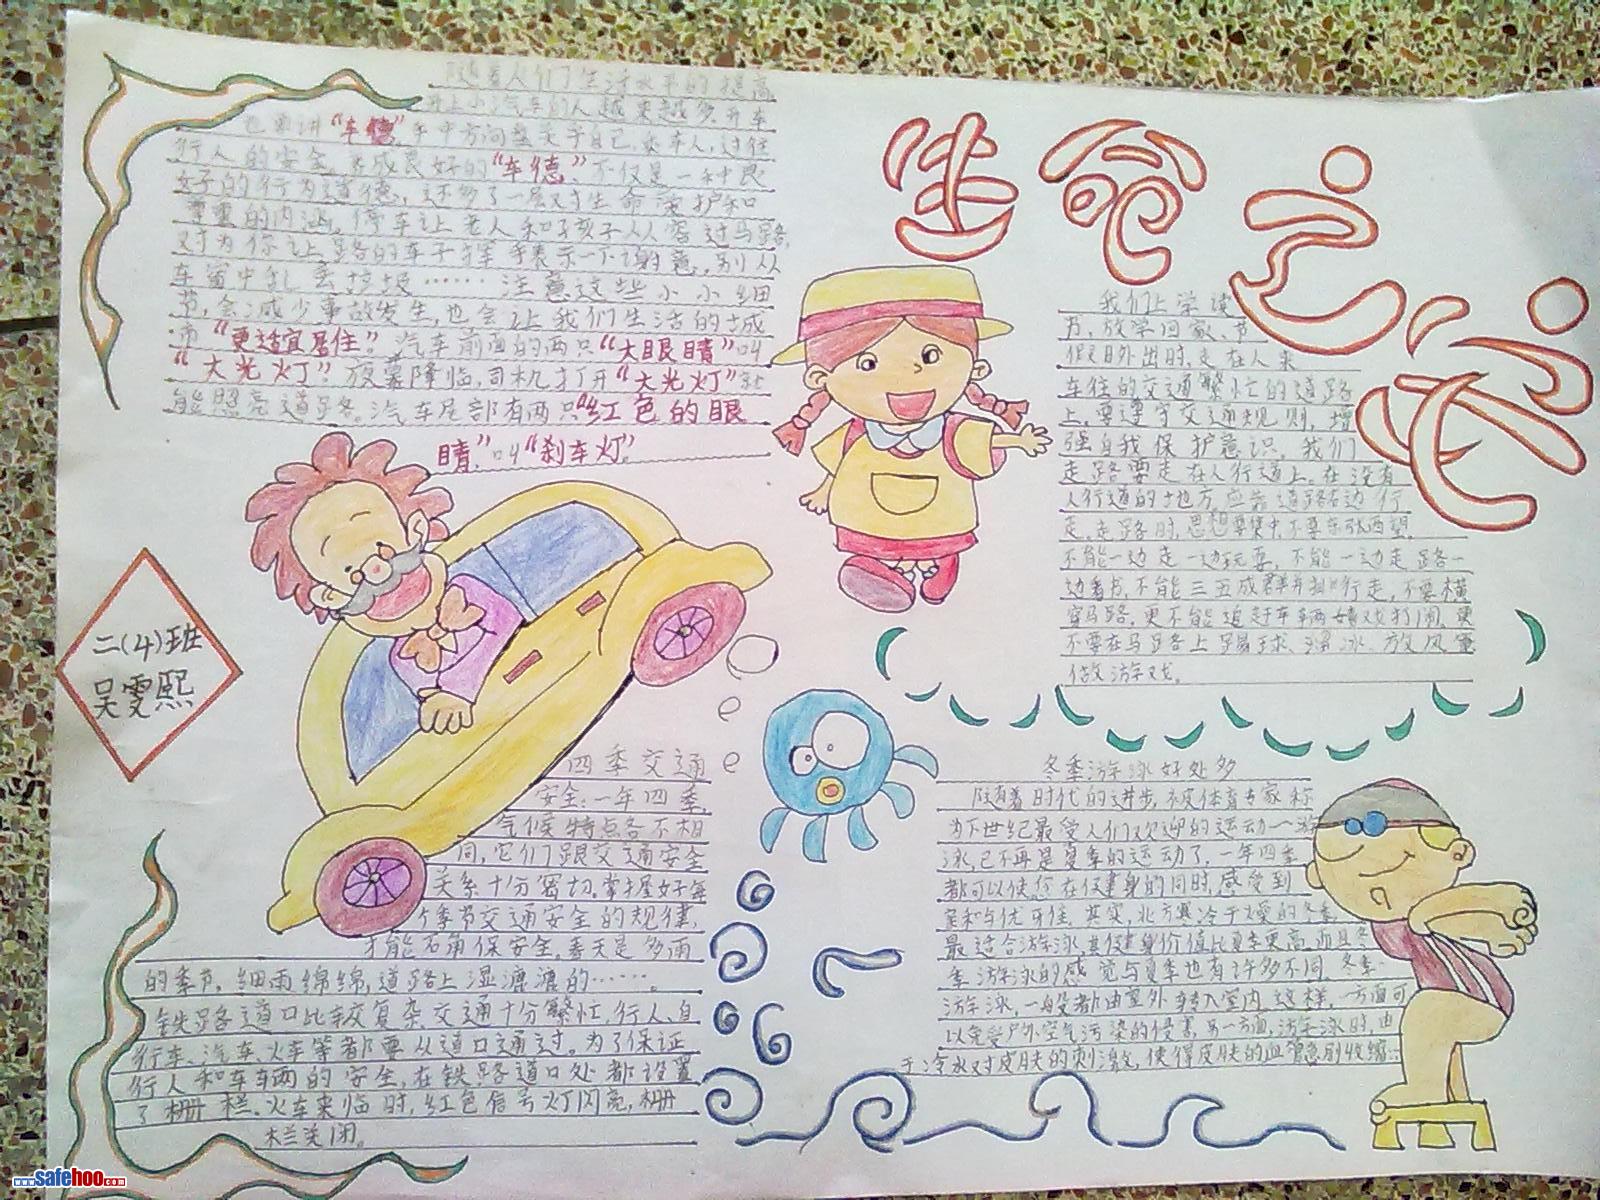 生命之花
随着人们生活水平的提高
开上小汽车的人越来越多，开车
也要讲“车德”，手中方向盘关乎自己，乘车人，过往
行人的安全。养成良好的“车德”，不仅是一种良
好的行为道德，还多了一层对生命爱护和
尊重的内涵。停车让老人和孩子从容过马路，
对为你让路的车子挥手表示一个谢意，别从
车窗中乱丢垃圾……注意这些小小细
节，会减少事故发生，也会让我们生活的城
市“更适宜居住”。汽车前面的两只“大眼睛”叫
“大光灯”。夜幕降临，司机打开“大光灯”就
能照亮道路。汽车尾部有两只“红色的眼
睛”，叫“刹车灯”。
二(4)班
吴雯熙
四季交通
安全：一年四季，
气候特点各不相
同，它们跟交通安全
关系十分密切。掌握好每
个季节交通安全的规律，
才能确保安全。春天是多雨
的季节，细雨绵绵，道路上湿漉漉的……。
铁路道口比较复杂，交通十分繁忙，行人、自
行车、汽车、火车等都要从道口通过。为了保证
行人和车辆的安全，在铁路道口处都设置
了栅栏。火车来临时，红色信号灯闪亮，栅
栏关闭。
我们上学读
书，放学回家、节
假日外出时，走在人来
车往的交通繁忙的道路
上，要遵守交通规则，增
强自我保护意识。我们
走路要走在人行道上。在没有
人行道的地方，应靠道路右边行
走。走路时，思想要集中，不要东张西望，
不能一边走一边玩耍，不能一边走路一
边看书，不能三五成群并排行走，不要横
穿马路。更不能追赶车辆嬉戏打闹。更
不要在马路上踢球、溜冰、放风筝
做游戏。
冬季游泳好处多
随着时代的进步，被体育专家称
为下世纪最受人们欢迎的运动——游
泳，已不再是夏季的运动了，一年四季
都可以使您在健身的同时，感受到
其实，北方寒冷干燥的冬季
最适合游泳，其健身价值比夏季更高。而且冬
季游泳的感觉与夏季也有许多不同。冬季
游泳，一般都由室外转入室内，这样，一方面可
以免受户外空气污染的侵害，另一方面，游泳时，由
于冷水对皮肤的刺激，使得皮肤的血管急剧收缩…
www.safehoo.com